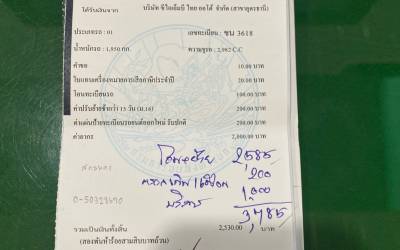 ได้รับเงินจาก บริษัท ซีไอเอ็มบี ไทย ออโต้ จำกัด (สาขาอุดรธานี)
ประเภทรถ : 01 เลขทะเบียน : ชน 3618
น้ำหนักรถ : 1,950 กก. ความจุรถ : 2,982 C.C
ค่าขอ 10.00 บาท
ใบแทนเครื่องหมายการเสียภาษีประจำปี 20.00 บาท
โอนทะเบียนรถ 100.00 บาท
ค่าปรับย้ายช้ากว่า 15 วัน (ม.16) 200.00 บาท
ค่าแผ่นป้ายทะเบียนรถยนต์ออกใหม่ รับปกติ 200.00 บาท
ค่าอากร 2,000.00 บาท
2,585
200
บริการ 1,000
3,785
รวมเป็นเงินทั้งสิ้น 2,530.00 บาท
(สองพันห้าร้อยสามสิบบาทถ้วน)